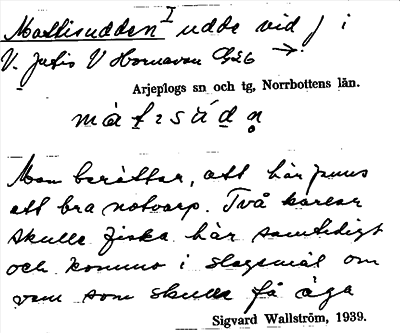 Mattisudden I udde vid J i
V. Jutis V Hornavan G5b →
Arjeplogs sn och tg, Norrbottens län.
Man berättar, att här funns
ett bra notvarp. Två karlar
skulle fiska här samtidigt
och kommo i slagsmål om
vem som skulle få äga
Sigvard Wallström, 1939.